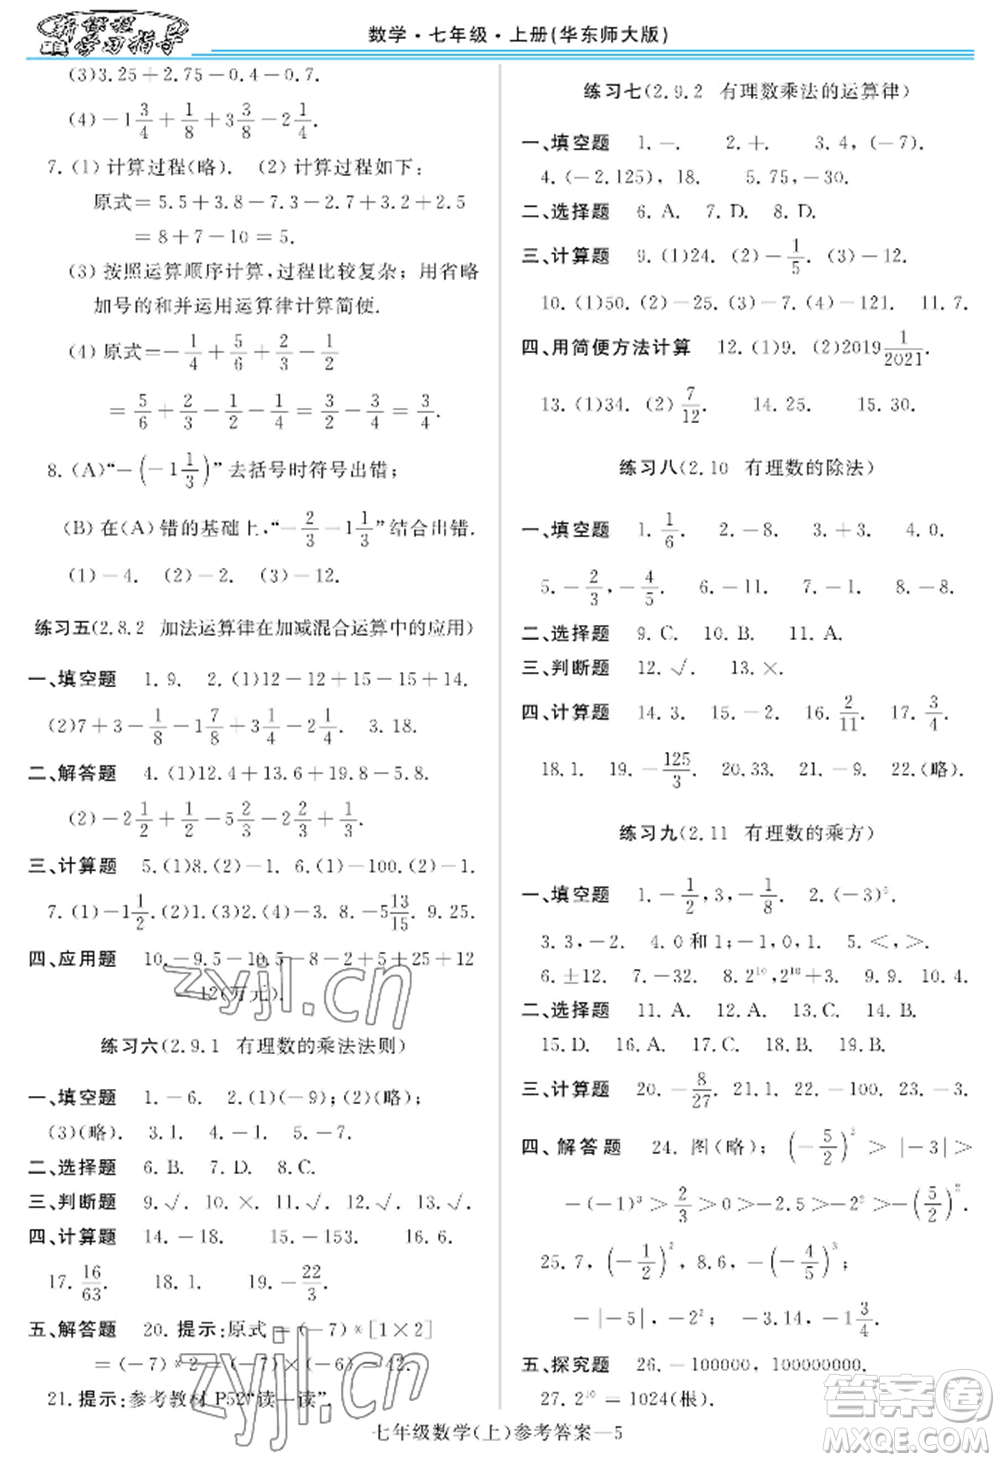 新课程
学习指导
数学·七年级·上册(华东师大版)
(3)3.25+2.75-0.4-0.7.
(4)-1 3/4+1/8+3 3/8-2 1/4.
7.(1)计算过程(略). (2)计算过程如下:
原式=5.5+3.8-7.3-2.7+2+2.5
=8+7-10=5.
(3)按照运算顺序计算,过程比较复杂;用省略
加号的和并运用运算律计算简便.
(4)原式=-1/4+5/6+2/3-1/2
=5/6+2/3-1/4-1/2=3/2-3/4=3/4.
8.(A)“-(-1 1/3)”去括号时符号出错;
(B)在(A)错的基础上,“-2/3-1 1/3”结合出错.
(1)-4. (2)-2. (3)-12.
练习五(2.8.2 加法运算律在加减混合运算中的应用)
一、填空题 1.9. 2.(1)12-12+15-15+14.
(2)7+3-1/8-1 7/8+3 1/4-2 1/4. 3.18.
二、解答题 4.(1)12.4+13.6+19.8-5.8.
(2)-2 1/2+1/2-5 2/3-2 2/3+1/3.
三、计算题 5.(1)8.(2)-1. 6.(1)-100.(2)-1.
7.(1)-1 1/2.(2)1.(3)2.(4)-3. 8.-5 13/15. 9.25.
四、应用题 10.-9.5-10.5-8-2+5+25+12
=12(万元).
练习六(2.9.1 有理数的乘法法则)
一、填空题 1.-6. 2.(1)(-9);(2)(略);
(3)(略). 3.1. 4.-1. 5.-7.
二、选择题 6.B. 7.D. 8.C.
三、判断题 9.√. 10.×. 11.√. 12.√. 13.√.
四、计算题 14.-18. 15.-153. 16.6.
17.16/63. 18.1. 19.-22/3.
五、解答题 20.提示:原式=(-7)*[1×2]
=(-7)*2=(-7)×6=-42.
21.提示:参考教材P52“读一读”.
练习七(2.9.2 有理数乘法的运算律)
一、填空题 1.-. 2.+. 3.(-7).
4.(-2.125),18. 5.75,-30.
二、选择题 6.A. 7.D. 8.D.
三、计算题 9.(1)24. (2)-1/5. (3)-12.
10.(1)50. (2)-4. (3)-2. (4)-121. 11.7.
四、用简便方法计算 12.(1)9. (2)2019 1/2021.
13.(1)34. (2)7/12. 14.25. 15.30.
练习八(2.10 有理数的除法)
一、填空题 1.1/6. 2.-8. 3.+3. 4.0.
5.-2/3,-4/5. 6.-11. 7.-1. 8.-7.
二、选择题 9.C. 10.B. 11.A.
三、判断题 12.√. 13.×.
四、计算题 14.3. 15.-2. 16.2/11. 17.3/4.
18.1. 19.-125/3. 20.33. 21.90. 22.(略).
练习九(2.11 有理数的乘方)
一、填空题 1.-1/2,3,-1/8. 2.(-3)⁶.
3.3,-2. 4.0和1,-1、0、1. 5.<,>.
6.±12. 7.-32. 8.2¹⁰,2¹⁸+3. 9.6. 10.4.
二、选择题 11.A. 12.C. 13.A. 14.C.
15.D. 16.D. 17.A. 18.A. 19.C.
三、计算题 20.-8/27. 21.1. 22.-100. 23.-3.
四、解答题 24.图(略);(-5/2)²>|-3|>
-(-1)³>2/3>0>-1.5>-2²>-(5/2)².
25.7,(-1/2)²,8.6,-(-4/5)³;
-|-5|,-2²; -3.14,-1 3/4.
五、探究题 26.-100000,100000000.
27.2¹⁰=1024(根).
七年级数学(上)参考答案—5
zyjl.cn
zyjl.cn
答案圈
MXQE.COM